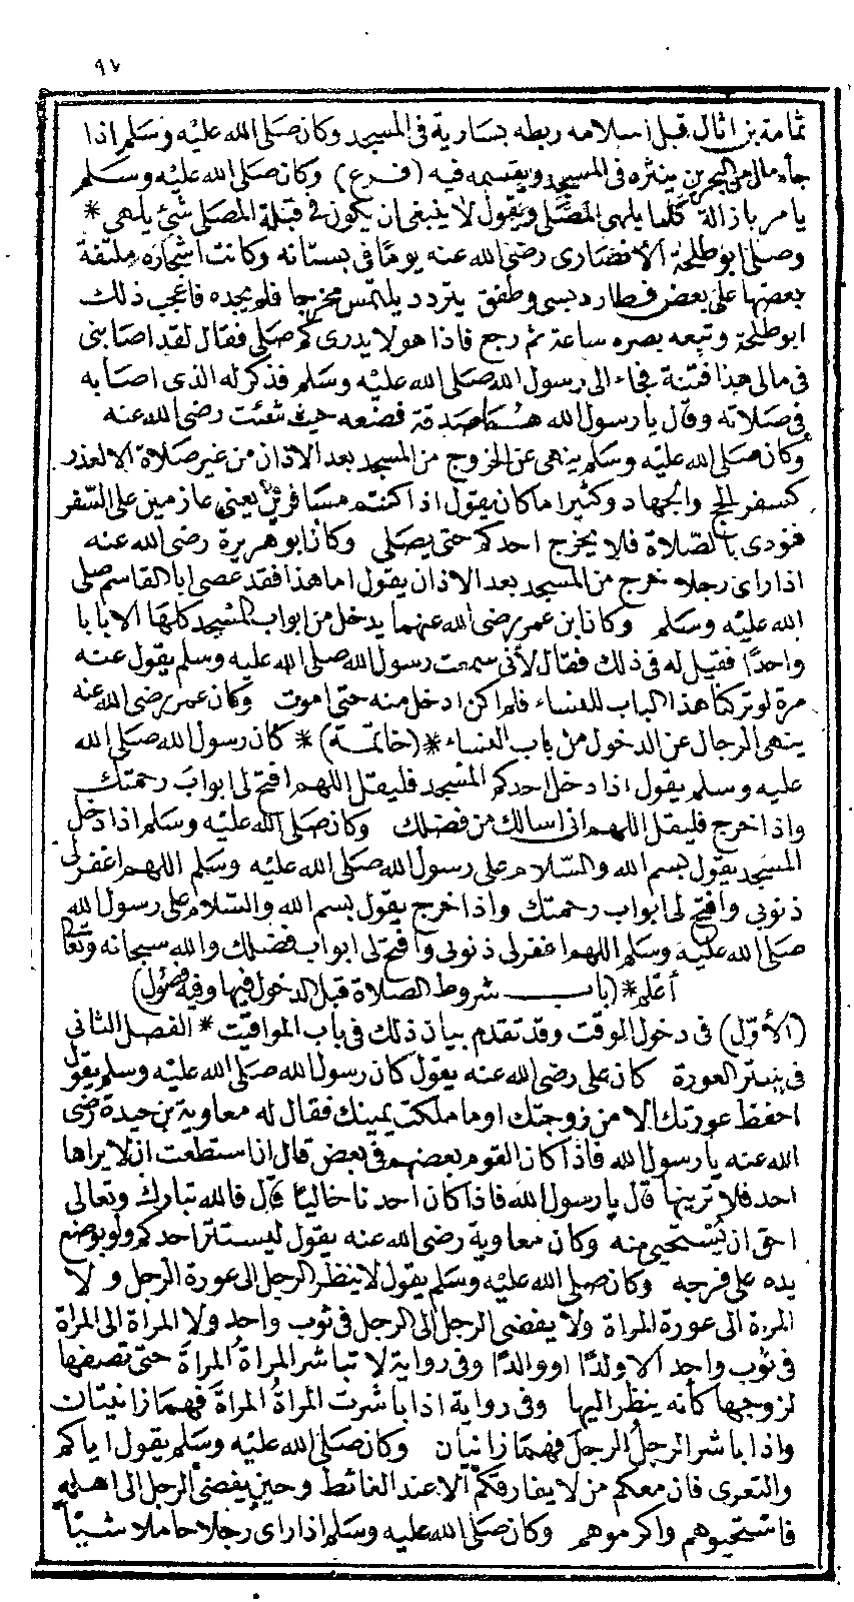 ٩٧
ثمامة بن اثال قبل اسلامه ربطه بسارية في المسجد وكان صلى الله عليه وسلم اذا
جاءه مال من البحرين ينثره في المسجد ويقسمه فيه (فرع) وكان صلى الله عليه وسلم
يامر بازالة كلما يلهى المصلى ويقول لا ينبغى ان يكون في قبلة المصلى شئ يلهى *
وصلى ابو طلحة الانصارى رضى الله عنه يوما في بستانه وكانت اشجاره ملتفة
بعضها على بعض فطار دبسى وطفق يتردد يلتمس مخرجا فلم يجده فاعجب ذلك
ابو طلحة وتبعه بصره ساعة ثم رجع فاذا هو لا يدرى كم صلى فقال لقد اصابنى
في مالى هذا فتنة فجاء الى رسول الله صلى الله عليه وسلم فذكر له الذى اصابه
في صلاته وقال يا رسول الله هو صدقة فضعه حيث شئت رضى الله عنه
وكان صلى الله عليه وسلم ينهى عن الخروج من المسجد بعد الاذان من غير صلاة الا لعذر
كسفر الحج والجهاد وكثيرا ما كان يقول اذا كنتم مسافرين يعنى عازمين على السفر
فنودى بالصلاة فلا يخرج احدكم حتى يصلى وكان ابو هريرة رضى الله عنه
اذا راى رجلا خرج من المسجد بعد الاذان يقول اما هذا فقد عصى ابا القاسم صلى
الله عليه وسلم وكان ابن عمر رضى الله عنهما يدخل من ابواب المسجد كلها الا بابا
واحدًا فقيل له في ذلك فقال لأنى سمعت رسول الله صلى الله عليه وسلم يقول عنه
مرة لو تركنا هذا الباب للنساء فلم اكن ادخل منه حتى اموت وكان عمر رضى الله عنه
ينهى الرجال عن الدخول من باب النساء *(خاتمة)* كان رسول الله صلى الله
عليه وسلم يقول اذا دخل احدكم المسجد فليقل اللهم افتح لى ابواب رحمتك
واذا خرج فليقل اللهم انى اسالك من فضلك وكان صلى الله عليه وسلم اذا دخل
المسجد يقول بسم الله والسّلام على رسول الله صلى الله عليه وسلم اللهم اغفر لى
ذنوبى وافتح لى ابواب رحمتك واذا خرج يقول بسم الله والسّلام على رسول الله
صلى الله عليه وسلم اللهم اغفر لى ذنوبى وافتح لى ابواب فضلك والله سبحانه وتعالى
أعلم *(باب شروط الصلاة قبل الدخول فيها وفيه فصول)
(الأوّل) في دخول الوقت وقد تقدم بيان ذلك في باب المواقيت * الفصل الثانى
في ستر العورة كان على رضى الله عنه يقول كان رسول الله صلى الله عليه وسلم يقول
احفظ عورتك الا من زوجتك او ما ملكت يمينك فقال له معاوية بن حيدة رضى
الله عنه يا رسول الله فاذا كان القوم بعضهم في بعض قال ان استطعت ان لا يراها
احد فلا ترينها قال يا رسول الله فاذا كان احدنا خاليًا قال فالله تبارك وتعالى
احق ان يُسْتحيى منه وكان معاوية رضى الله عنه يقول ليستتر احدكم ولو بوضع
يده على فرجه وكان صلى الله عليه وسلم يقول لا ينظر الرجل الى عورة الرجل ولا
المرءة الى عورة المراة ولا يفضى الرجل الى الرجل في ثوب واحد ولا المراة الى المراة
في ثوب واحد الا ولدًا او والدًا وفى رواية لا تباشر المراةُ المراةَ حتى تصفها
لزوجها كأنه ينظر اليها وفى رواية اذا باشرت المراةُ المراةَ فهما زانيتان
واذا باشر الرجلُ الرجلَ فهما زانيان وكان صلى الله عليه وسلم يقول اياكم
والتعرى فان معكم من لا يفارقكم الا عند الغائط وحين يفضى الرجل الى اهله
فاستحيوهم واكرموهم وكان صلى الله عليه وسلم اذا راى رجلا حاملا شيئا